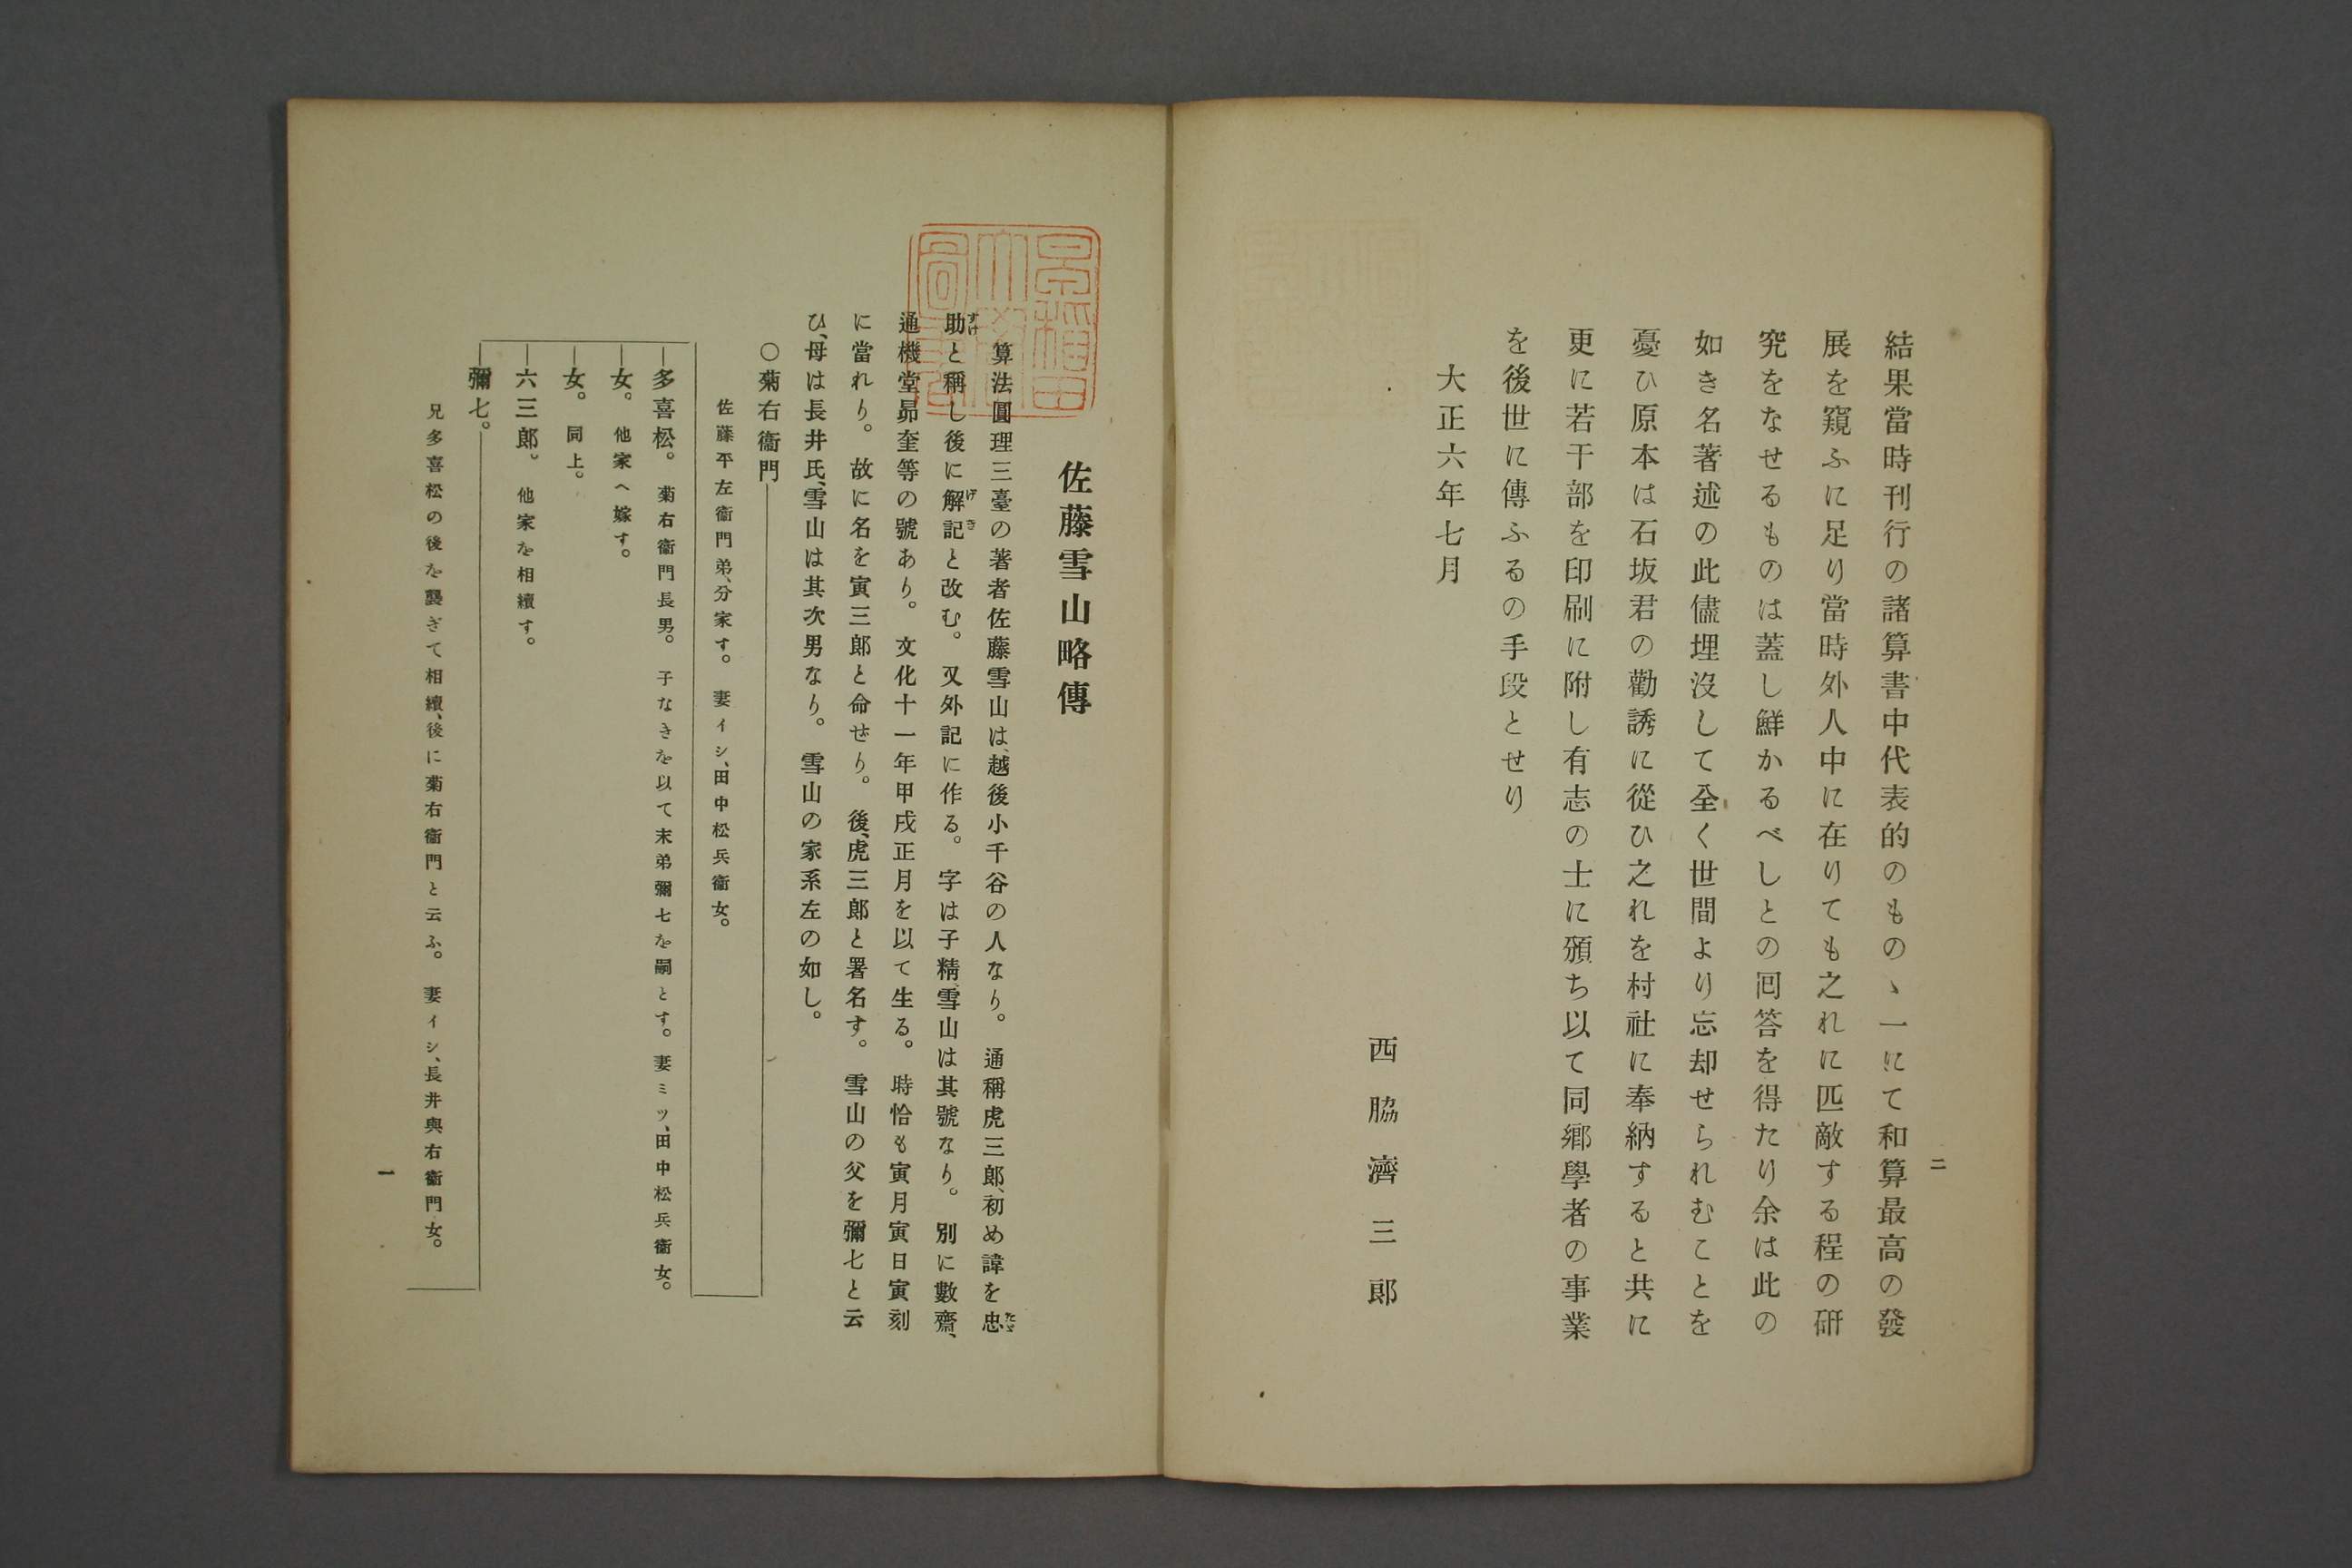 二
結果當時刊行の諸算書中代表的のものゝ一にて和算最高の發
展を窺ふに足り當時外人中に在りても之れに匹敵する程の研
究をなせるものは蓋し鮮かるべしとの囘答を得たり余は此の
如き名著述の此儘埋沒して全く世間より忘却せられむことを
憂ひ原本は石坂君の勸誘に從ひ之れを村社に奉納すると共に
更に若干部を印刷に附し有志の士に頒ち以て同鄕學者の事業
を後世に傳ふるの手段とせり
大正六年七月
西脇濟三郎
佐藤雪山略傳
算法圓理三臺の著者佐藤雪山は、越後小千谷の人なり。通稱虎三郎、初め諱を忠
助と稱し後に解記と改む。又外記に作る。字は子精、雪山は其號なり。別に數齋、
通機堂昴奎等の號あり。文化十一年甲戌正月を以て生る。時恰も寅月寅日寅刻
に當れり。故に名を寅三郎と命せり。後、虎三郎と署名す。雪山の父を彌七と云
ひ、母は長井氏、雪山は其次男なり。雪山の家系左の如し。
○菊右衞門
佐藤平左衞門弟、分家す。妻イシ、田中松兵衞女。
多喜松。菊右衞門長男。子なきを以て末弟彌七を嗣とす。妻ミツ、田中松兵衞女。
女。他家へ嫁す。
女。同上。
六三郎。他家を相續す。
彌七。
兄多喜松の後を襲ぎて相續、後に菊右衞門と云ふ。妻イシ、長井與右衞門女。
一